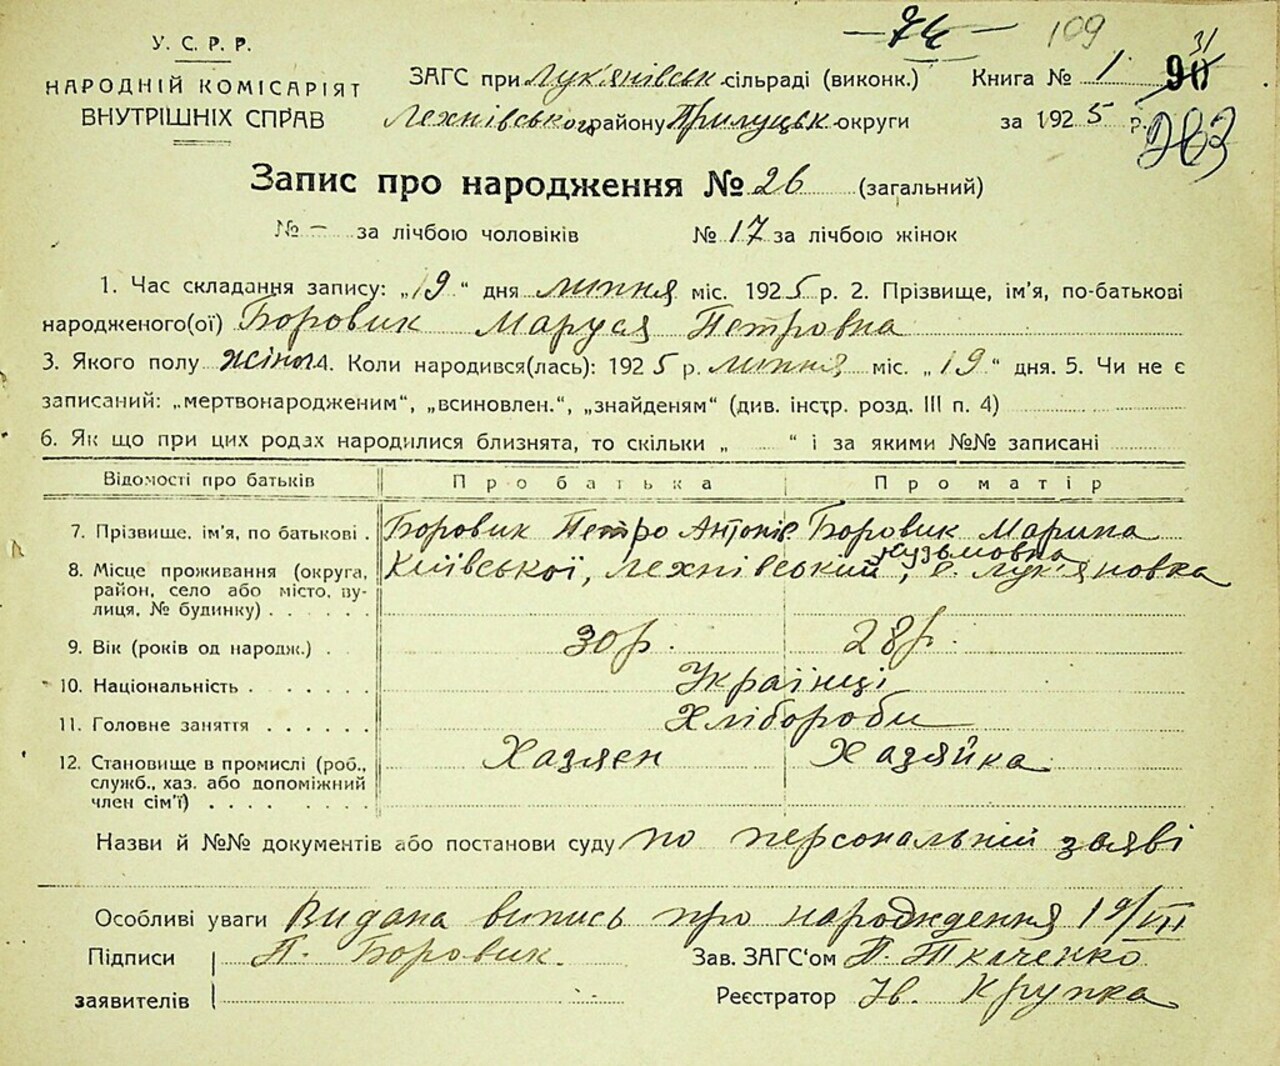 74 109 31
У. С. Р. Р.
НАРОДНІЙ КОМІСАРІЯТ
ВНУТРІШНІХ СПРАВ
ЗАГС при Лук'янівськ сільраді (виконк.) Книга № 1 90
Лехнівського району Прилуцьк округи за 1925 р. 263
Запис про народження № 26 (загальний)
№ – за лічбою чоловіків № 17 за лічбою жінок
1. Час складання запису: „19“ дня липня міс. 1925 р. 2. Прізвище, ім'я, по-батькові
народженого(ої) Боровик Маруся Петровна
3. Якого полу жіноч 4. Коли народився(лась): 1925 р. липня міс. „19“ дня. 5. Чи не є
записаний: „мертвонародженим“, „всиновлен.“, „знайденям“ (див. інстр. розд. III п. 4)
6. Як що при цих родах народилися близнята, то скільки „ “ і за якими №№ записані
Відомості про батьків Про батька Про матір
7. Прізвище, ім'я, по батькові . Боровик Петро Антонів. Боровик Марина
Кузьмовна
8. Місце проживання (округа, Київської, Лехнівський, с. Лук'яновка
район, село або місто, ву-
лиця, № будинку) . . . . .
9. Вік (років од народж.) . 30 р. 28 р.
10. Національність . . . . . . Українці
11. Головне заняття . . . . . . Хлібороби
12. Становище в промислі (роб., Хазяєн Хазяйка
служб., хаз. або допоміжний
член сім'ї) . . . . . . . .
Назви й №№ документів або постанови суду по персональній заяві
Особливі уваги Видана випись про народждення 19/VII
Підписи П. Боровик. Зав. ЗАГС'ом П. Ткаченко
заявителів Реєстратор Ів. Крупка